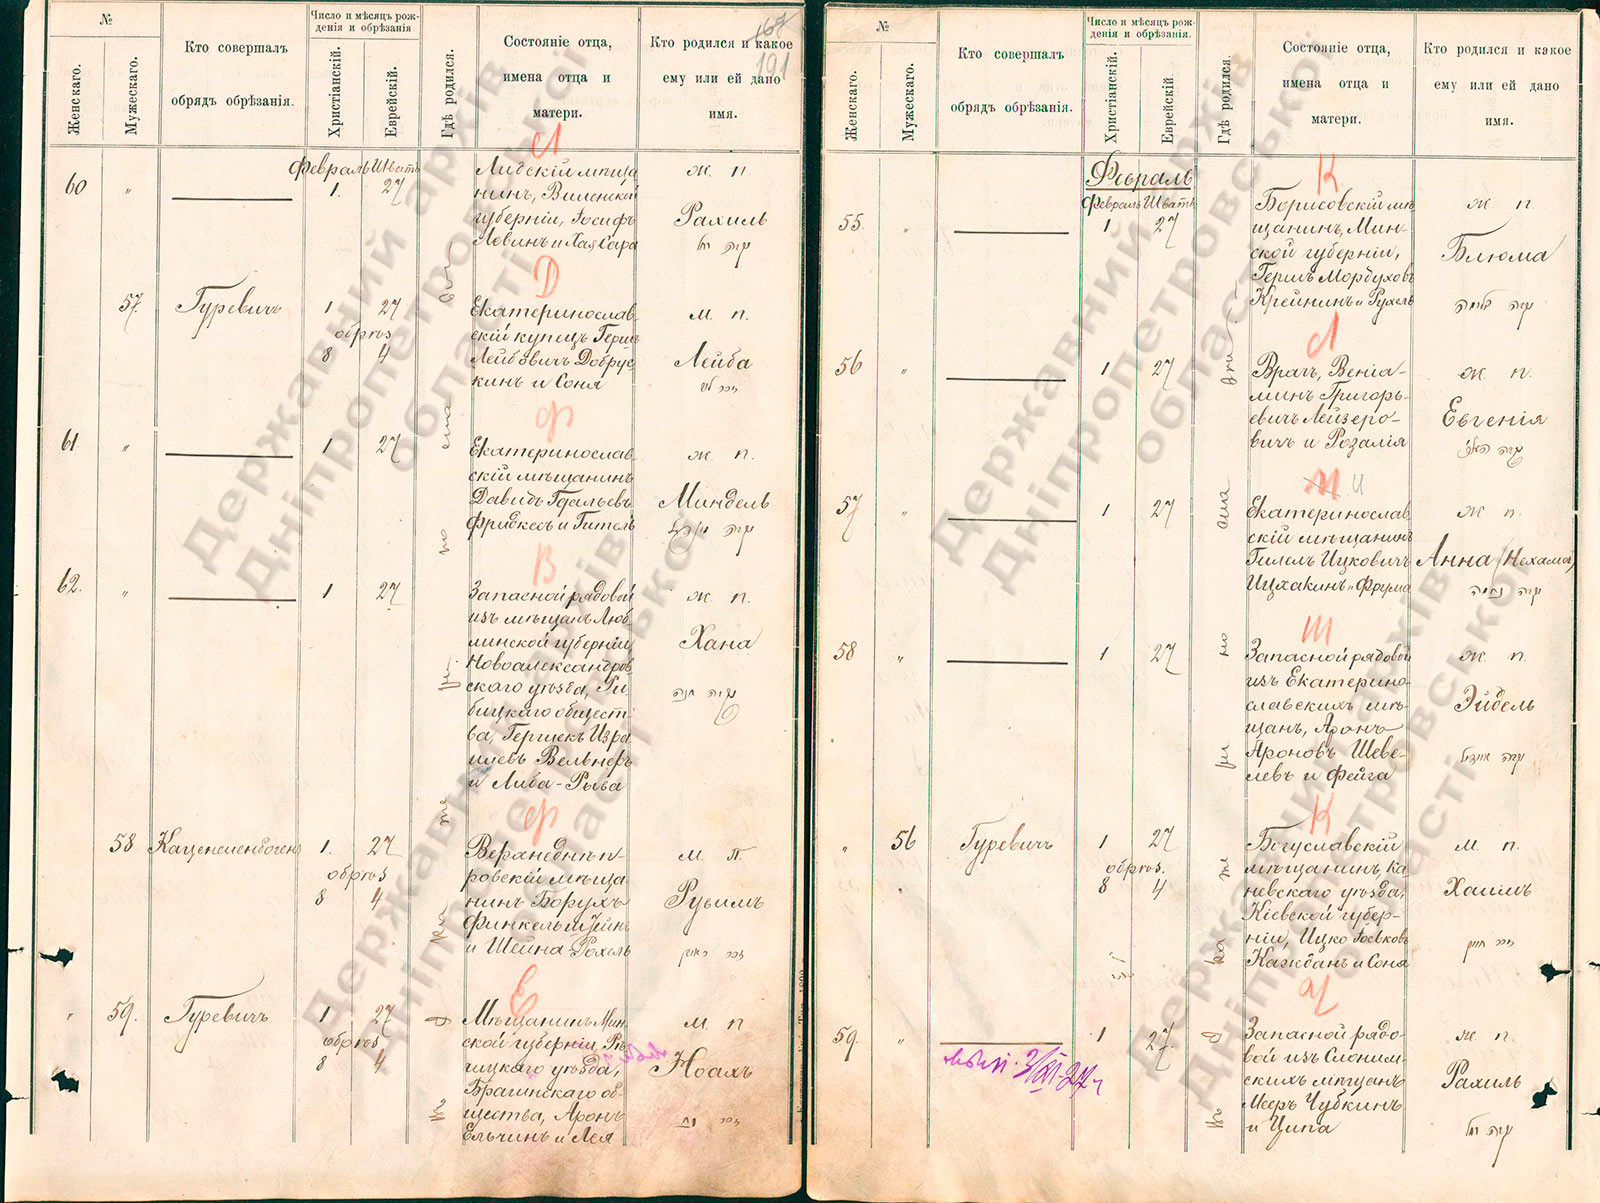 №
Женскаго.
Мужескаго.
Кто совершалъ
обрядъ обрѣзанія.
Число и мѣсяцъ рож-
денія и обрѣзанія
Христіанскій.
Еврейскій.
Гдѣ родился.
Состояніе отца,
имена отца и
матери.
Кто родился и какое
ему или ей дано
имя.
167
191
Л
Февраль Шватъ
60 " 1. 27
Лидскій мѣща
нинъ, Виленской
губерніи, Іосифъ
Левинъ и Хая Сара
ж. п.
Рахиль
Д
57. Гуревичъ 1 27
обрѣз
8 4
Екатеринослав
скій купецъ Герш
Лейбовичъ Добрус
кинъ и Соня
м. п.
Лейба
Ф
61. " 1 27
Екатеринослав
скій мѣщанинъ
Давидъ
Фридкесъ и Гитель
ж. п.
Миндель
В
62. " 1 27
Запасной рядовой
изъ мѣщанъ Люб
линской губерніи,
Новоалександров
скаго уѣзда,
бицкаго общест
ва, Гершекъ Изра
илевъ Вельнеръ
и Либа-Рыва
ж. п.
Хана
Ф
58 Каценеленбогенъ 1. 27
обрѣз
8 4
Верхнеднѣп-
ровскій мѣща
нинъ Борухъ
Финкельштейнъ
и Шейна-Рохель
м. п.
Рувимъ
Е
" 59. Гуревичъ 1 27
обрѣз
8 4
Мѣщанинъ Мин
ской губерніи, Рѣ
чицкаго уѣзда,
Брагинскаго об-
щества, Аронъ
Ельчинъ и Лея
м. п
Ноахъ
№
Женскаго.
Мужескаго.
Кто совершалъ
обрядъ обрѣзанія.
Число и мѣсяцъ рож-
денія и обрѣзанія.
Христіанскій.
Еврейскій
Гдѣ родился.
Состояніе отца,
имена отца и
матери.
Кто родился и какое
ему или ей дано
имя.
Февраль
К
Февраль Шватъ
55. " 1 27
Борисовскій мѣ
щанинъ, Мин-
ской губерніи,
Гершъ Мордуховъ
Крейнинъ и Рухель
ж. п.
Блюма
Л
56 " 1 27
Врачъ, Веніа-
минъ Григорь-
евичъ Лейзеро-
вичъ и Розалія
ж. п.
Евгенія
И
57 " 1 27
Екатеринослав
скій мѣщанинъ
Гилель Ицковичъ
Ицхакинъ и Фрума
ж. п.
Анна (Нехама)
Ш
58 " 1 27
Запасной рядовой
изъ Екатерино-
славскихъ мѣ-
щанъ, Аронъ
Ароновъ Шеве-
левъ и Фейга
ж. п.
Эйдель
К
" 56 Гуревичъ 1 27
обрѣз.
8 4
Богуславскій
мѣщанинъ, Ка
невскаго уѣзда,
Кіевской губер-
ніи, Ицко Іоськовъ
Каждан и Соня
м. п.
Хаимъ
Ч
59. " 1 27.
Запасной рядо-
вой изъ Слоним-
скихъ мѣщанъ
Мееръ Чубкинъ
и Ципа
ж. п
Рахиль
Державний архів
Дніпропетровської
області